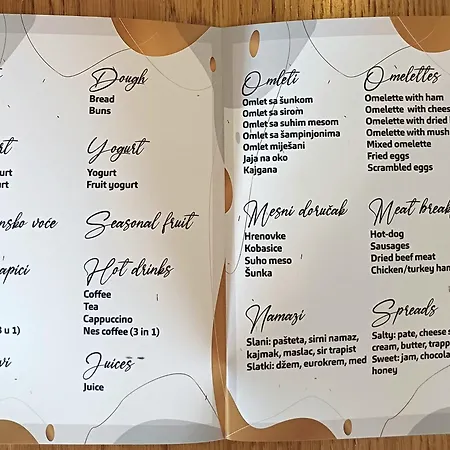 Dough
Bread
Buns
Yogurt
Yogurt
Fruit yogurt
voće
Seasonal fruit
Hot drinks
Coffee
Tea
Cappuccino
Nes coffee (3 in 1)
3 u 1)
Juices
Juice
Omleti
Omlet sa šunkom
Omlet sa sirom
Omlet sa suhim mesom
Omlet sa šampinjonima
Omlet miješani
Jaja na oko
Kajgana
Mesni doručak
Hrenovke
Kobasice
Suho meso
Šunka
Namazi
Slani: pašteta, sirni namaz,
kajmak, maslac, sir trapist
Slatki: džem, eurokrem, med
Omelettes
Omelette with ham
Omelette with chees
Omelette with dried
Omelette with mush
Mixed omelette
Fried eggs
Scrambled eggs
Meat break
Hot-dog
Sausages
Dried beef meat
Chicken/turkey ham
Spreads
Salty: pate, cheese s
cream, butter, trapp
Sweet: jam, chocola
honey